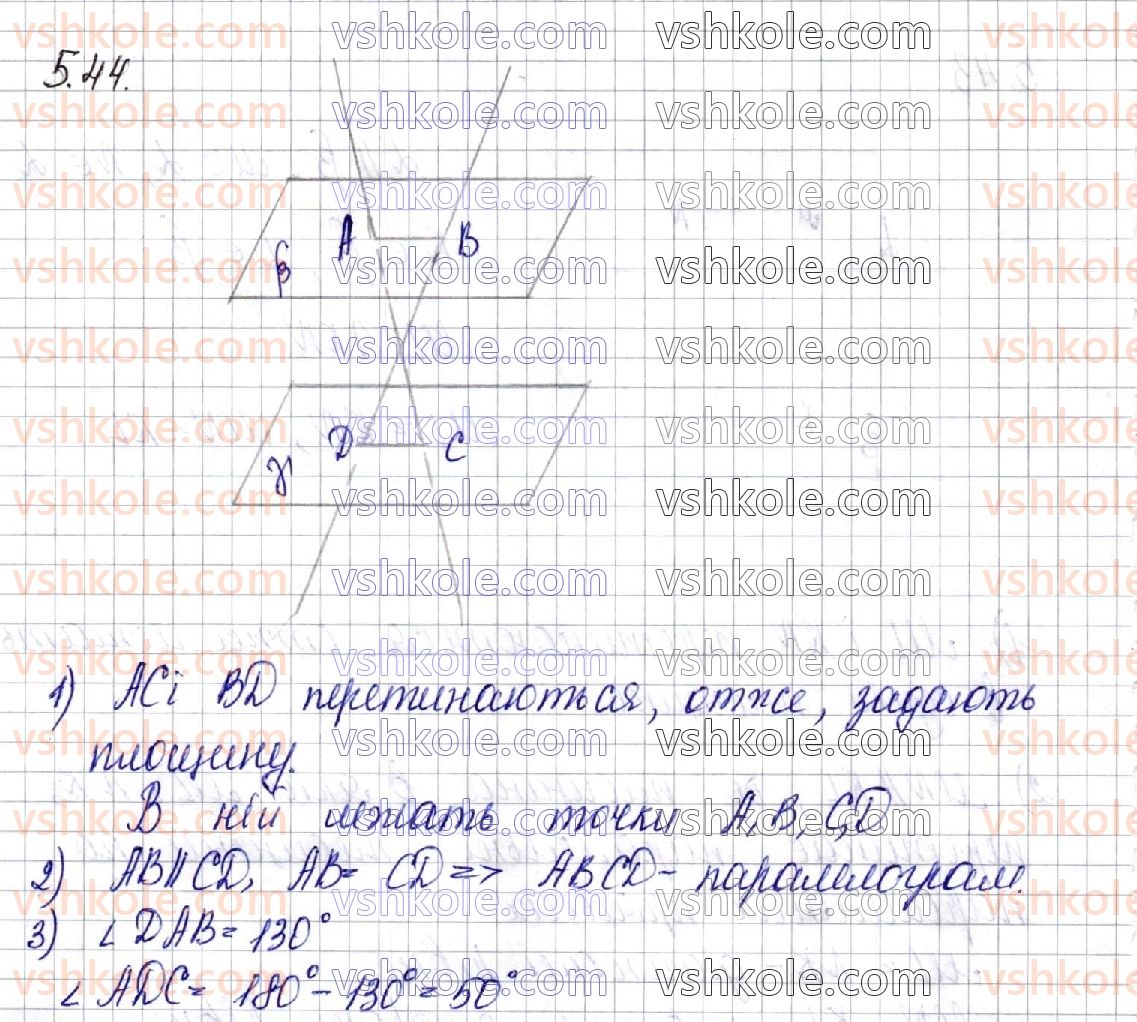 5.44.
A B
β
D C
γ
1) AC і BD перетинаються, отже, задають
площину.
В ній лежать точки A, B, C, D
2) AB || CD, AB = CD => ABCD - паралелограм.
3) ∠DAB = 130°
∠ADC = 180° - 130° = 50°
vshkole.com